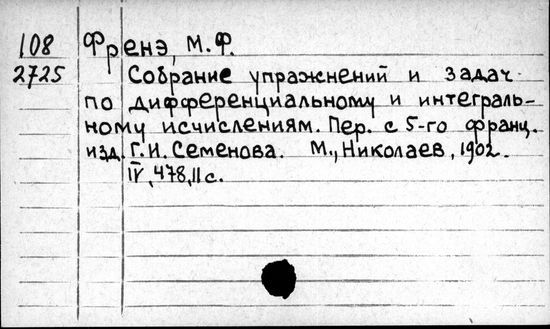 108 Френэ, М.Ф.
2725 Собрание упражнений и задач
по дифференциальному и интеграль-
ному исчислениям. Пер. с 5-го франц.
изд. Г.И. Семенова. М., Николаев, 1902.
IV, 478, II с.